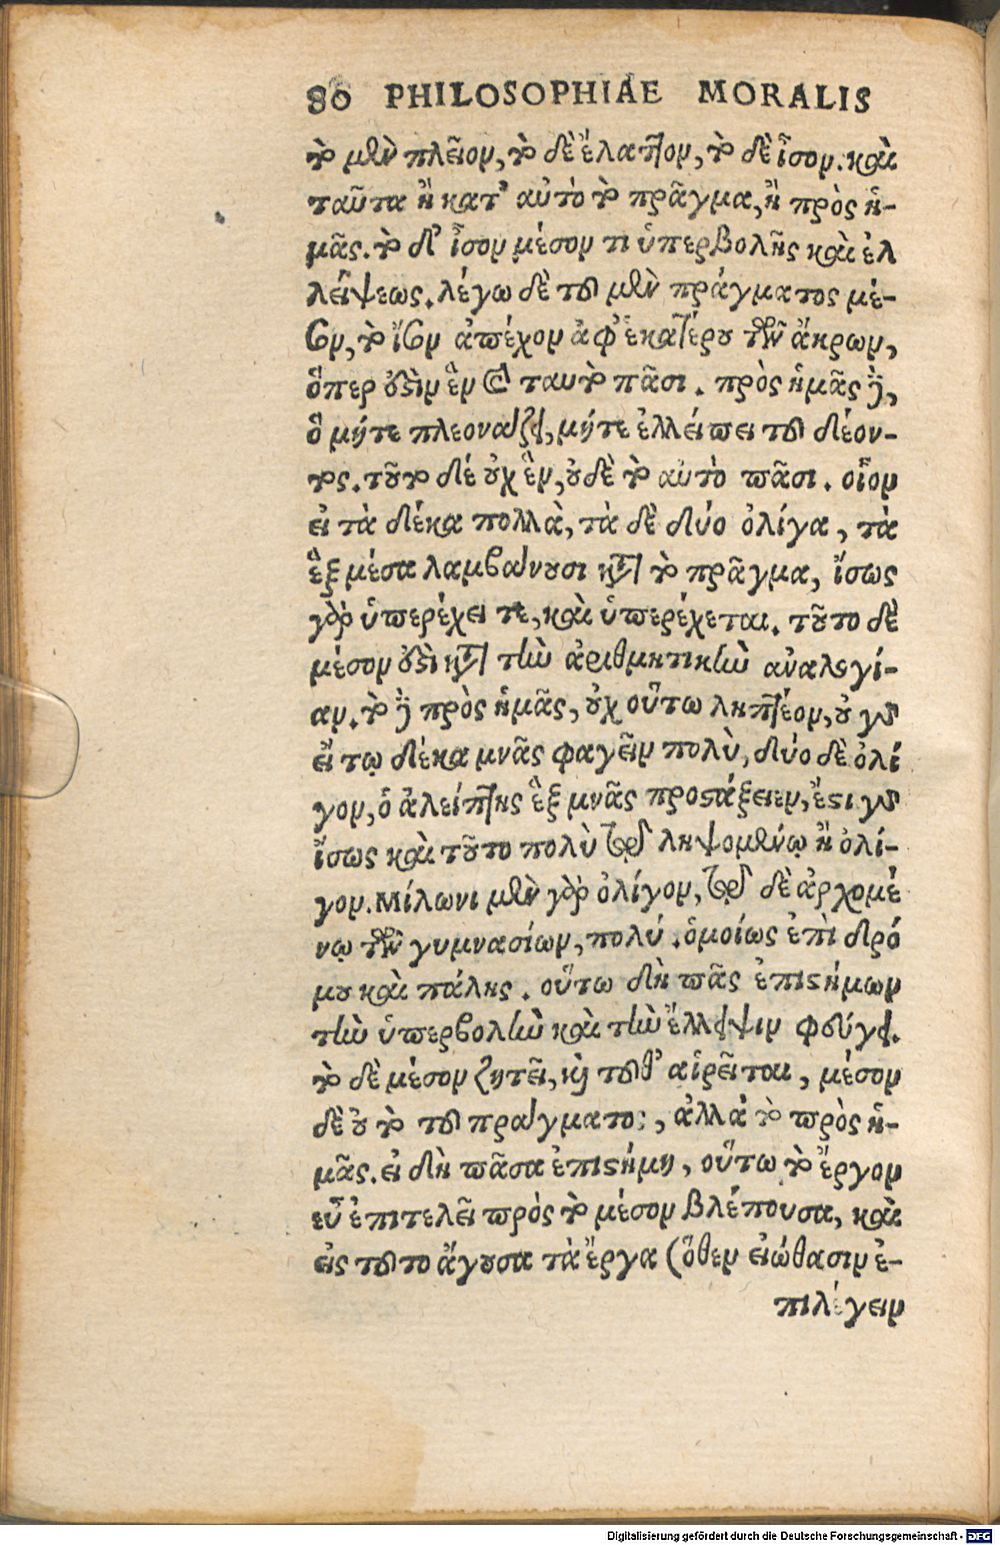 80 PHILOSOPHIAE MORALIS
τὸ μὲν πλεῖον, τὸ δὲ ἔλαττον, τὸ δὲ ἶσον. καὶ
ταῦτα ἢ κατ' αὐτὸ τὸ πρᾶγμα, ἢ πρὸς ἡ-
μᾶς. τὸ δ' ἶσον μέσον τι ὑπερβολῆς καὶ ἐλ
λείψεως. λέγω δὲ τοῦ μὲν πράγματος μέ-
σον, τὸ ἴσον ἀπέχον ἀφ' ἑκατέρου τῶν ἄκρων,
ὅπερ ὀζὶν ἓν καὶ ταυτὸ πᾶσι. πρὸς ἡμᾶς δὲ,
ὃ μήτε πλεονάζει, μήτε ἐλλείπει τοῦ δέον-
τος. τοῦτο δέ οὐχ ἓν, οὐδὲ τὸ αὐτὸ πᾶσι. οἷον
εἰ τὰ δέκα πολλὰ, τὰ δὲ δύο ὀλίγα, τὰ
ἓξ μέσα λαμβάνουσι κατὰ τὸ πρᾶγμα, ἴσως
γὰρ ὑπερέχει τε, καὶ ὑπερέχεται. τοῦτο δὲ
μέσον ὀζὶ κατὰ τὴν ἀριθμητικὴν ἀναλογί-
αν. τὸ δὲ πρὸς ἡμᾶς, οὐχ οὕτω ληπτέον, οὐ γὰρ
εἴ τῳ δέκα μνᾶς φαγεῖν πολὺ, δύο δὲ ὀλί
γον, ὁ ἀλείπτης ἓξ μνᾶς προστάξειεν, ἔστι γὰρ
ἴσως καὶ τοῦτο πολὺ τῷ ληψομένῳ ἢ ὀλί-
γον. Μίλωνι μὲν γὰρ ὀλίγον, τῷ δὲ ἀρχομέ
νῳ τῶν γυμνασίων, πολύ. ὁμοίως ἐπὶ δρό
μου καὶ πάλης. οὕτω δὴ πᾶς ἐπιστήμων
τὴν ὑπερβολὴν καὶ τὴν ἔλλειψιν φεύγει.
τὸ δὲ μέσον ζητεῖ, καὶ τοῦθ' αἱρεῖται, μέσον
δὲ οὐ τὸ τοῦ πράγματος, ἀλλὰ τὸ πρὸς ἡ-
μᾶς. εἰ δὴ πᾶσα ἐπιστήμη, οὕτω τὸ ἔργον
εὖ ἐπιτελεῖ πρὸς τὸ μέσον βλέπουσα, καὶ
εἰς τοῦτο ἄγουσα τὰ ἔργα (ὅθεν εἰώθασιν ἐ-
πιλέγειν
Digitalisierung gefördert durch die Deutsche Forschungsgemeinschaft - DFG